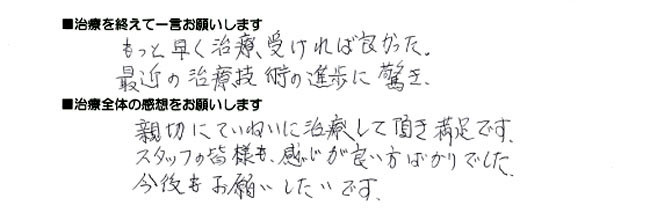 ■治療を終えて一言お願いします
もっと早く治療、受ければ良かった。
最近の治療技術の進歩に驚き、
■治療全体の感想をお願いします
親切にていねいに治療して頂き満足です、
スタッフの皆様も、感じが良い方ばかりでした、
今後もお願いしたいです、